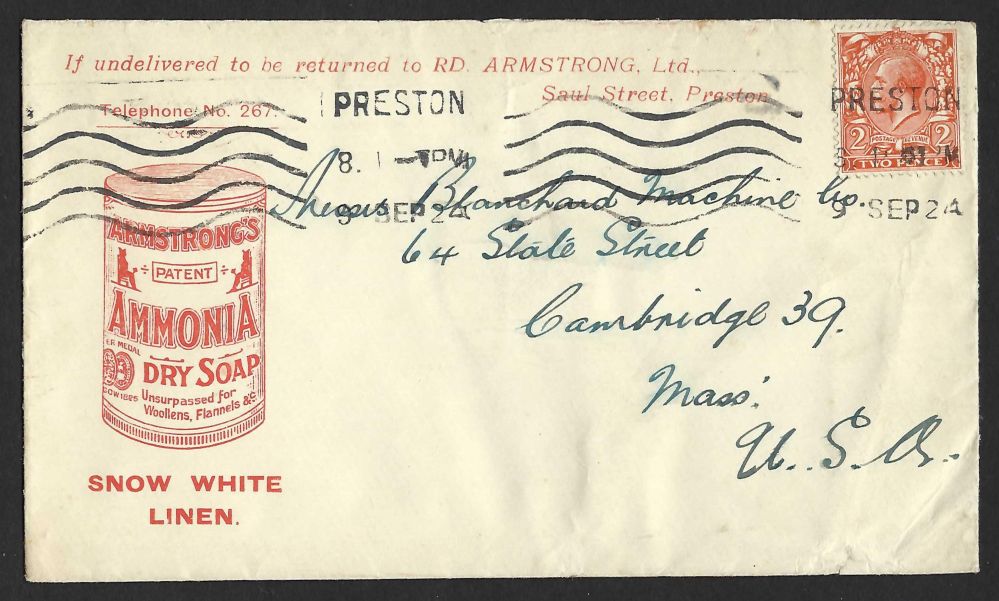 If undelivered to be returned to RD. ARMSTRONG, Ltd.,
Saul Street, Preston
Telephone No. 267.
PRESTON
8. 1 - PM
9 SEP 24
PRESTON
9 SEP 24
POSTAGE REVENUE
2 2
TWO PENCE
Blanchard Machine Co.
64 State Street
Cambridge 39.
Mass.
U. S. A.
ARMSTRONG'S
PATENT
AMMONIA
ER MEDAL
DRY SOAP
OW 1885
Unsurpassed for
Woollens, Flannels &c
SNOW WHITE
LINEN.